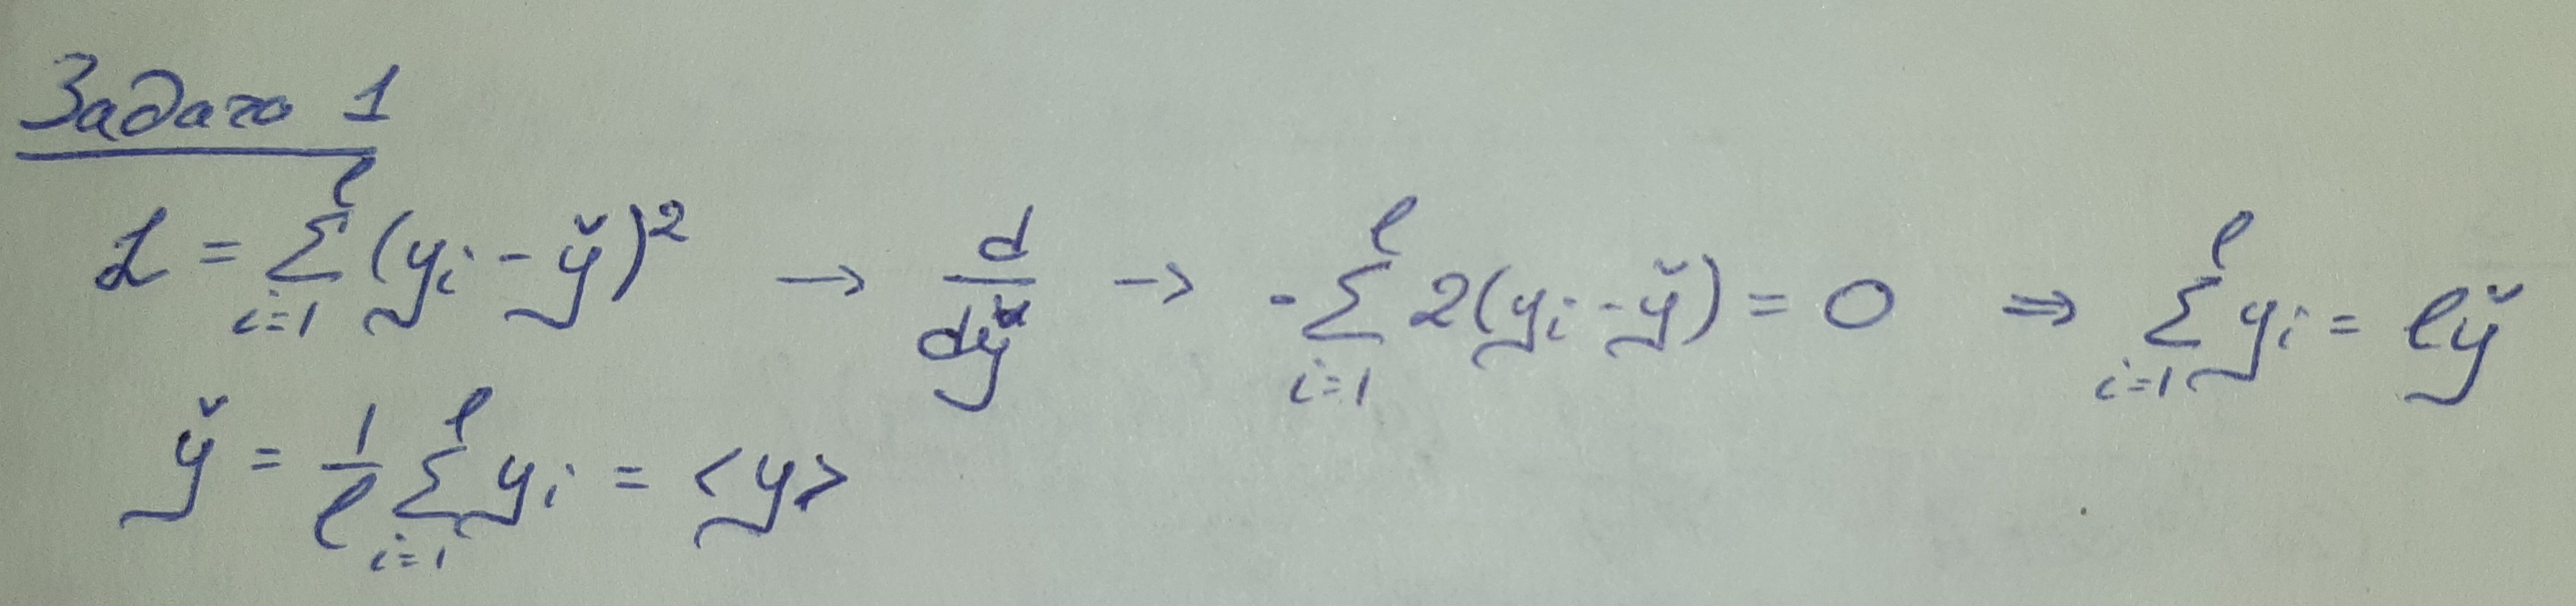 Задача 1
L = \sum_{i=1}^{l} (y_i - \check{y})^2 → \frac{d}{d\check{y}} → -\sum_{i=1}^{l} 2(y_i - \check{y}) = 0 ⇒ \sum_{i=1}^{l} y_i = l\check{y}
\check{y} = \frac{1}{l} \sum_{i=1}^{l} y_i = <y>